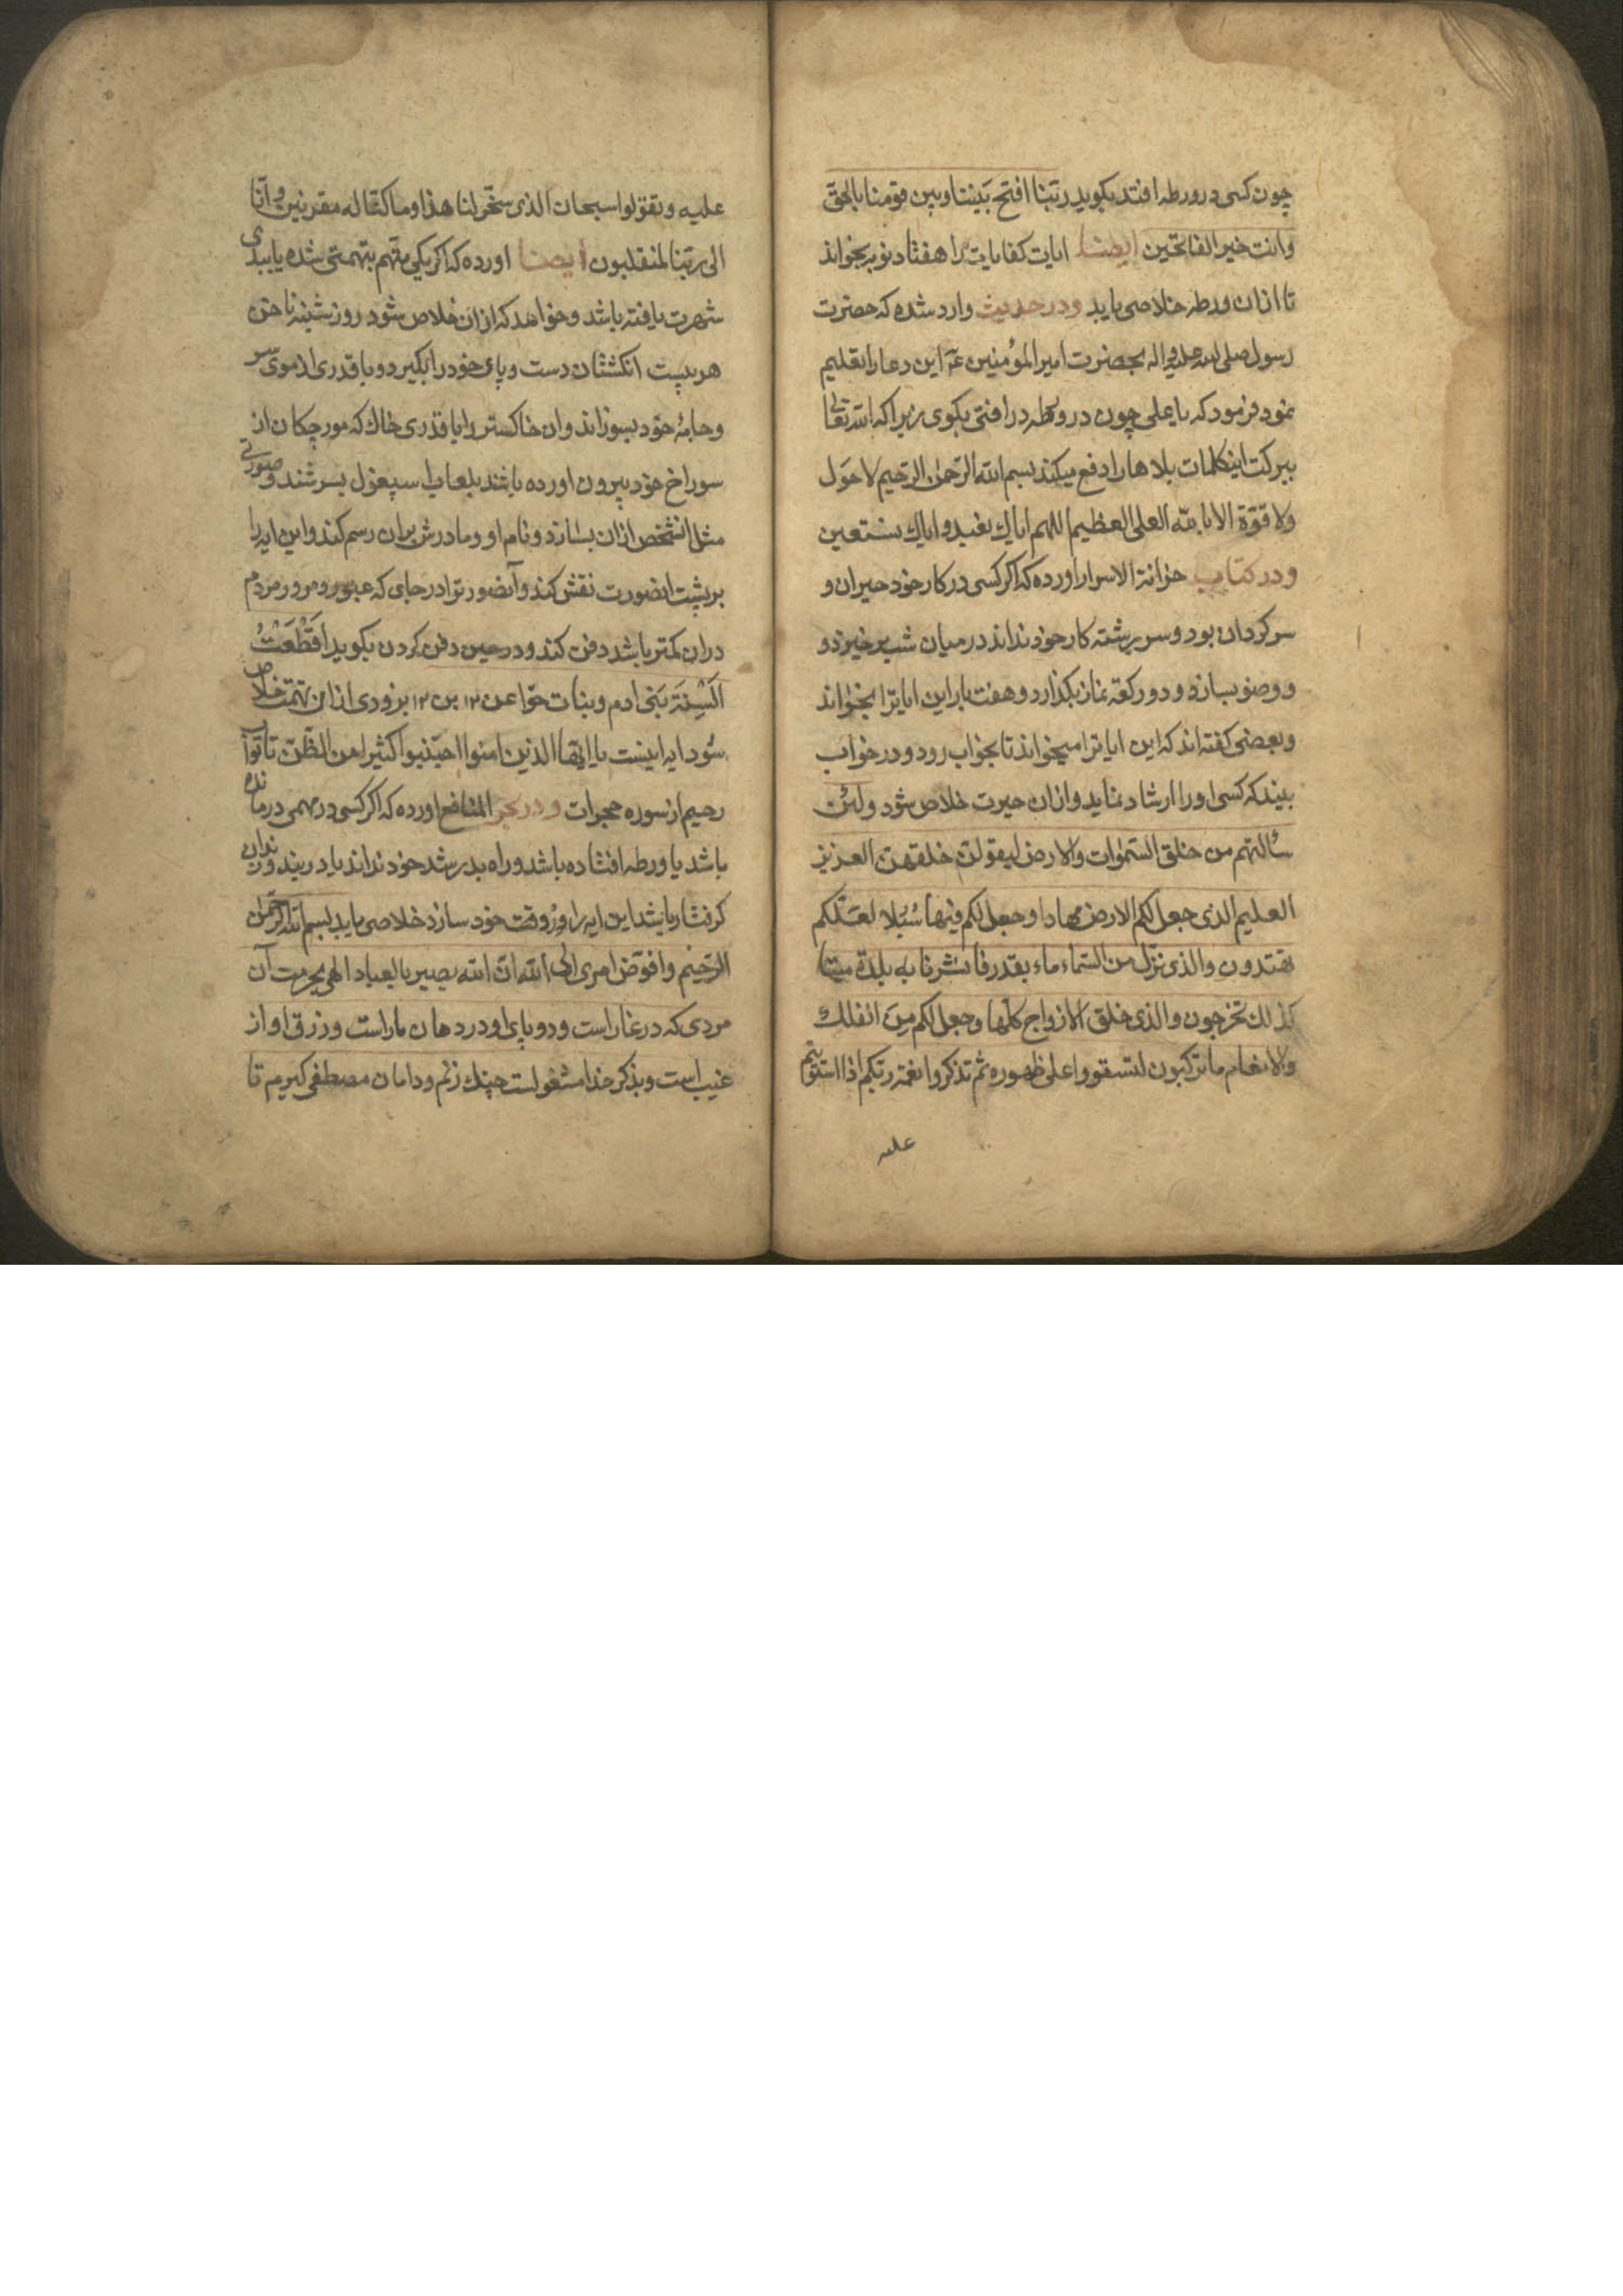 چون کسی در ورطه افتد بکوید ربّنا افتح بَیننا و بین قومنا بالحقّ
وانت خیر الفاتحین ایضا ایات کفایات را هفتاد نوبه بخواند
تا ازان ورطه خلاصی یابد ودر حدیث وارد شده که حضرت
رسول صلی الله علیه واله بحضرت امیر المؤمنین این دعا را تعلیم
نمود فرمود که یا علی چون در ورطه در افتی بکوی زیرا که الله تعالی
ببرکت اینکلمات بلاها را دفع میکند بسم الله الرّحمن الرّحیم لا حَول
ولا قوّة الا بالله العلی العظیم اللهم ایاك نعبد و ایاك نستعین
ودر کتاب خزانة الاسرار اورده که اکر کسی در کار خود حیران و
سرکردان بود و سر رشته کار خود نداند در میان شب برخیزد و
و وضو بسازد و دو رکعة نماز بکذارد و هفت بار این ایاترا بخواند
وبعضی کفته اند که این ایاترا میخواند تا بخواب رود و در خواب
بیند که کسی اورا ارشاد نماید وازان حیرت خلاص شود ولئن
سألتهم من خلق السّموات والارض لیقولنّ خلقهنّ العزیز
العلیم الذی جعل لکم الارض مهادا وجعل لکم فیها سُبُلا لعلّکم
تهتدون والذی نزّل من السّماء ماء بقدر فانشرنا به بلدة میتا
کذلك تخرجون والذی خلق الازواج کلها وجعل لکم مِنَ الفلك
والانعام ما ترکبون لتستووا علی ظهوره ثم تذکروا نعمة ربّکم اذا استویتم
علیه
علیه وتقولوا سبحان الذی سخّر لنا هذا وما کنّا له مقرنین وانّا
الی ربّنا لمنقلبون ایضا اورده که اکر یکی متّهم بتهمتی شده یا ببدی
شهرت یافته باشد و خواهد که ازان خلاص شود روز شنبه ناخن
هر بیست انکشتان دست و پای خود را بکیرد و با قدری از موی سر
وجامهٔ خود بسوزاند وان خاکستر را با قدری خاك که مورچکان از
سوراخ خود بیرون اورده باشند بلعاب اسپغول بسرشند و صورتی
مثل انشخص ازان بسازد و نام او و مادرش بران رسم کند واین ایه را
بر پشت انصورت نقش کند وآنصورترا در جای که عبور و مرور مردم
دران کمتر باشد دفن کند و در حین دفن کردن بکوید قَطَعْتُ
اَلسِنَةَ بَنی ادم وبنات حوّا عن ۱۲ بن ۱۲ بزودی ازان تهمت خلاص
شود ایه اینست یا ایّها الذین امنوا اجتنبوا کثیرا من الظّنّ تا توّاب
رحیم از سوره حجرات و در بحر المنافع اورده که اکر کسی در مهمی درمانده
باشد یا ورطه افتاده باشد و راه بدر شد خود نداند یا در بند و زندان
کرفتار باشد این ایه را ورد وقت خود سازد خلاصی یابد بسم الله الرّحمن
الرّحیم وافوّض امری الی الله انّ الله بصیر بالعباد الهی بحرمت آن
مردی که در غار است و دو پای او در دهان مار است و رزق او از
غیب است و بذکر خدا مشغولست چنك زنم و دامان مصطفی کیرم تا